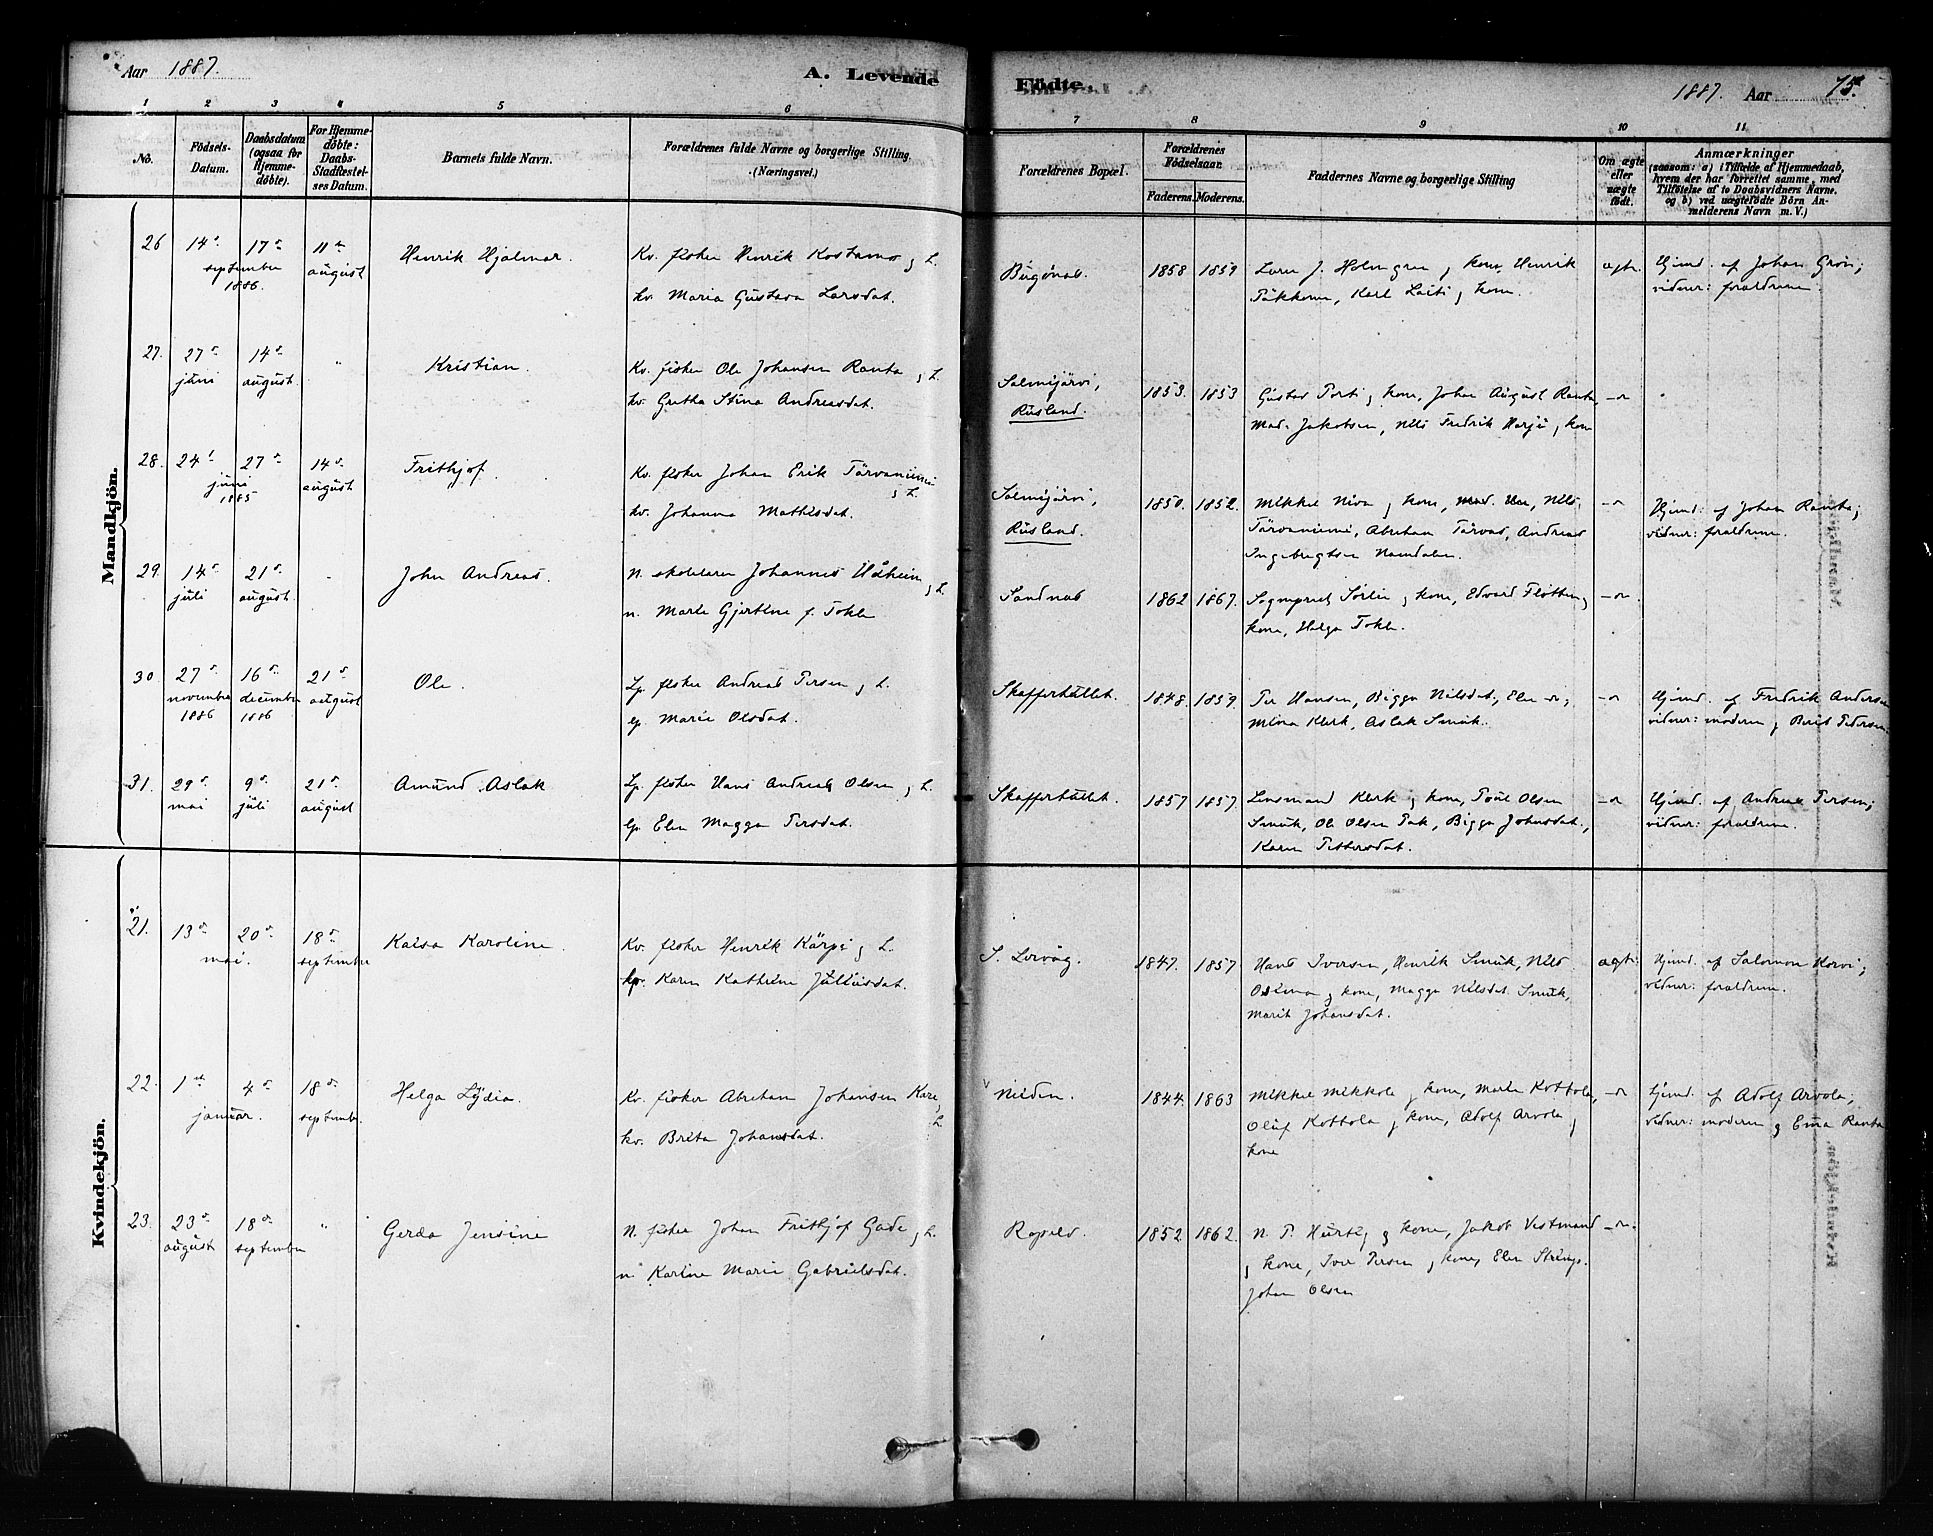 Aar 1887.
A. Levende
Födte.
1887. Aar 75.
1 2 3 4 5 6
7 8 9 10 11
No.
Födsels-Datum.
Daabsdatum (ogsaa for Hjemme-döbte).
For Hjemme-döbte: Daabs-Stadfæstel-ses Datum.
Barnets fulde Navn.
Forældrenes fulde Navne og borgerlige Stilling. (Næringsvei.)
Forældrenes Bopæl.
Forældrenes Födselsaar.
Faderens. Moderens.
Faddernes Navne og borgerlige Stilling
Om ægte eller uægte födt.
Anmærkninger
(saasom: a) i Tilfælde af Hjemmedaab, hvem der har forrettet samme, med Tilföielse af to Daabsvidners Navne, og b) ved uægtefödte Börn An-melderens Navn m. V.)
Mandkjön.
26 14de 17de september 1886. 11te august Henrik Hjalmar. Kv. fisker Henrik Kostamo og L.
kv. Maria Gustava Larsdat.
Bugönæs. 1858 1859 Lars J. Holmgren og kone, Henrik
Pükkonen, Karl Laiti og kone. ægte. Hjemd. af Johan Grön;
vidner: forældrene.
27. 27de juni 14de august. " Kristian. Kv. fisker Ole Johansen Ranta og L.
kv. Gretha Stina Andreasdat.
Salmijärvi, Rusland. 1853. 1853 Gustav Porti og kone, Johan August Ranta,
Mad. Jakobsen, Nils Fredrik Harju og kone
28. 24de 27de juni 1885 14de august Frithjof. Kv. fisker Johan Erik Törvaniemi og L.
kv. Johanna Mathisdat.
Salmijärvi, Rusland. 1850. 1852. Mikkel Niva og kone, Nils
Törvaniemi, Abraham Törvas, Andreas
Ingebrigtsen Namdalen. Hjemd: af Johan Ranta;
vidner: forældrene.
29. 14de juli 21de august. " John Andreas. N. skolelærer Johannes Udheim og L.
n. Marte Gjertine f. Tokle
Sandnæs 1862 1867. Sogneprest Sörlie og kone, Edvard Flötten og
kone, Helga Tokle.
30. 27de november 1886 16de december 1886 21de august Ole. Lp. fisker Andreas Persen og L.
lp. Marie Olsdat.
Skafferhullet. 1848. 1859. Per Hansen, Bigga Nilsdat, Elen do,
Mina Klerk, Aslak Smuk. Hjemd. af Fredrik Andersen
vidner: moderen og Berit Pedersen.
31. 29de mai 9de juli 21de august Amund Aslak Lp. fisker Hans Andreas Olsen og L.
lp. Elen Magga Persdat.
Skafferhullet. 1857 1857. Lensmand Klerk og kone, Poul Olsen
Smuk, Ole Olsen Pak, Bigga Johnsdat.,
Karen Pettersdat. Hjemd. af Andreas Persen;
vidner: forældrene.
Kvindekjön.
21. 13de 20de mai. 18de september Kaisa Karoline. Kv. fisker Henrik Kärpi og L.
Karen Kathrine Juliusdat.
S. Leirvåg. 1847. 1857 Hans Iversen, Henrik Smuk, Nils
Osima og kone, Magga Nilsdat. Smuk,
Marit Johansdat. ægte. Hjemd. af Salomon Korvi;
vidner: forældrene.
22. 1ste 4de januar. 18de september. Helga Lydia. Kv. fisker Abraham Johansen Kare og L.
kv. Brita Johansdat.
Neiden. 1844. 1863 Mikkel Mikkola og kone, Maria Kottola,
Oluf Kottola og kone, Adolf Arvola og
kone Hjemd. af Adolf Arvola;
vidner: moderen og Eina Ranta
23. 23de august 18de september " Gerda Jensine N. fisker Johan Frithjof Gade og L.
n. Karline Marie Gabrielsdat.
Ropeld. 1852 1862. N. P. Hurtig og kone, Jakob Vestmand
og kone, Iver Persen og kone, Elen Strings.
Johan Olsen